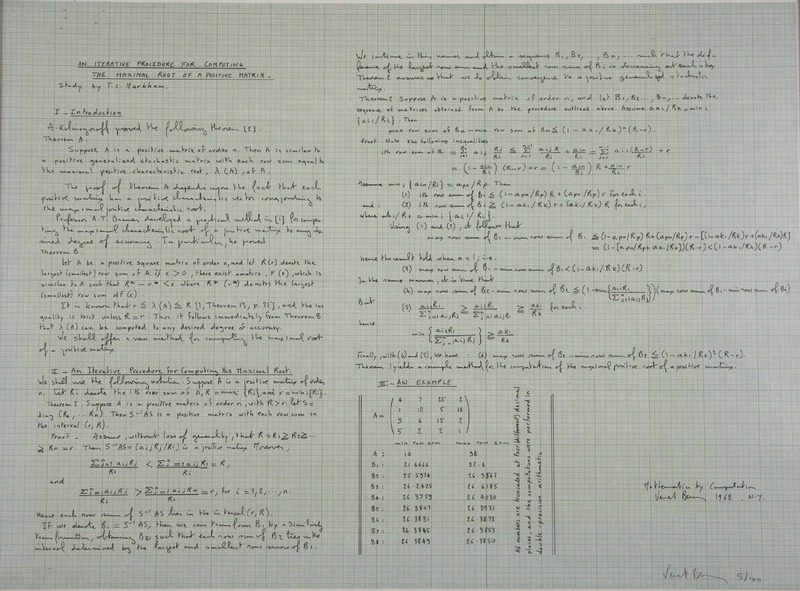 AN ITERATIVE PROCEDURE FOR COMPUTING
THE MAXIMAL ROOT OF A POSITIVE MATRIX.
Study by T.L. Markham.
I - Introduction
A. Kolmogoroff proved the following theorem [2].
Theorem A.
Suppose A is a positive matrix of order n. Then A is similar to
a positive generalized stochastic matrix with each row sum equal to
the maximal positive characteristic root, λ (A), of A.
The proof of theorem A depends upon the fact that each
positive matrix has a positive characteristic vector corresponding to
the maximal positive characteristic root.
Professor A.T. Brauer developed a practical method in [1] for compu-
ting the maximal characteristic root of a positive matrix to any de-
sired degree of accuracy. In particular, he proved
Theorem B
Let A be a positive square matrix of order n, and let R(r) denote the
largest (smallest) row sum of A. If ε > 0, there exist a matrix, F (ε), which is
similar to A such that R* - r* < ε where R* (r*) denotes the largest
(smallest) row sum of F(ε)
It is known that r ≤ λ (A) ≤ R [3, Theorem 13, p. 21], and the ine
quality is strict unless R = r. Thus it follows immediately from Theorem B
that λ (A) can be computed to any desired degree of accuracy.
We shall offer a new method for computing the maximal root
of a positive matrix
II - An Iterative Procedure For Computing the Maximal Root.
We shall use the following notation. Suppose A is a positive matrix of order
n. Let Ri denote the ith row sum of A, R = max {Ri}, and r = min {Ri}.
Theorem I. Suppose A is a positive matrix of order n, with R > r. Let S =
diag (R1, ... Rn). Then S⁻¹AS is a positive matrix with each row sum in
the interval (r, R).
Proof - Assume, without loss of generality, that R = R1 ≥ R2 ≥ ...
≥ Rn = r. Then S⁻¹AS = (aij Rj / Ri) is a positive matrix. Moreover,
Σⁿj=1 aij Rj / Ri < Σⁿj=1 aij R1 / Ri = R,
and
Σⁿj=1 aij Rj / Ri > Σⁿj=1 aij Rn / Ri = r, for i = 1, 2, ..., n.
Hence each row sum of S⁻¹AS lies in the interval (r, R).
If we denote B1 = S⁻¹AS, then we can transform B1 by a similarity
transformation, obtaining B2, such that each row sum of B2 lies in the
interval determined by the largest and smallest row sums of B1.
We continue in this manner and obtain a sequence B1, B2, ..., Bn, ... such that the dif-
ference of the largest row sum and the smallest row sum of Bi is decreasing at each step.
Theorem 2 assures us that we do obtain convergence to a positive generalized stochastic
matrix.
Theorem 2 Suppose A is a positive matrix of order n, and let B1, B2, ..., Bn, ... denote the
sequence of matrices obtained from A by the procedure outlined above. Assume ak1 / Rk = min i
{ai1 / Ri}. Then
max row sum of Bn - min row sum of Bn ≤ (1 - ak1 / Rk)ⁿ (R-r).
Proof. Note the following inequalities
ith row sum of B1 = Σ aij Rj / Ri ≤ Σ aij R / Ri + ain r / Ri = Σ aij (R-r) / Ri + r
= (1 - ain / Ri) (R-r) + r = (1 - ain / Ri) R + ain / Ri r
Assume min i {ain / Ri} = apn / Rp. Then
(1) ith row sum of B1 ≤ (1 - apn / Rp) R + (apn / Rp) r for each i.
and: (2) ith row sum of B1 ≥ (1 - ak1 / Rk) r + (ak1 / Rk) R for each i,
where ak1 / Rk = min i {ai1 / Ri}
Using (1) and (2), it follows that
max row sum of B1 - min row sum of B1 ≤ (1 - apn / Rp) R + (apn / Rp) r - [(1 - ak1 / Rk) r + (ak1 / Rk) R]
= (1 - [apn / Rp + ak1 / Rk]) (R-r) < (1 - ak1 / Rk) (R-r)
Hence the result told when n = 1; i.e.
(3) max row sum of B1 - min row sum of B1 < (1 - ak1 / Rk) (R-r)
In the same manner, it is true that
(4) max row sum of B2 - min row sum of B2 ≤ (1 - min {ai1 R1 / Σⁿj=1 aij Rj}) (max row sum of B1 - min row sum of B1)
But
(5) ai1 R1 / Σⁿj=1 aij Rj ≥ ai1 R1 / Σⁿj=1 aij R ≥ ak1 / Rk for each i.
hence
min {ai1 R1 / Σⁿj=1 aij Rj} ≥ ak1 / Rk
Finally, with (4) and (5), we have: (6) max row sum of B2 - min row sum of B2 ≤ (1 - ak1 / Rk)² (R-r).
Theorem I yields a simple method for the computation of the maximal positive root of a positive matrix.
III - AN EXAMPLE
4 7 25 2
A = 1 12 5 18
3 6 15 2
5 2 2 1
min row sum max row sum
A: 10 38
B1: 21.6666 32.6
B2: 25.5974 26.9567
B3: 26.2425 26.6185
B4: 26.3759 26.4030
B5: 26.3807 26.3931
B6: 26.3831 26.3873
B7: 26.3845 26.3853
B8: 26.3849 26.3850
All numbers are truncated at four (different) decimal
places, and the computations were performed in
double-precision arithmetic
Mathematic by Computation
Venet Bernar 1968. N.Y.
Venet Bernar 5/100